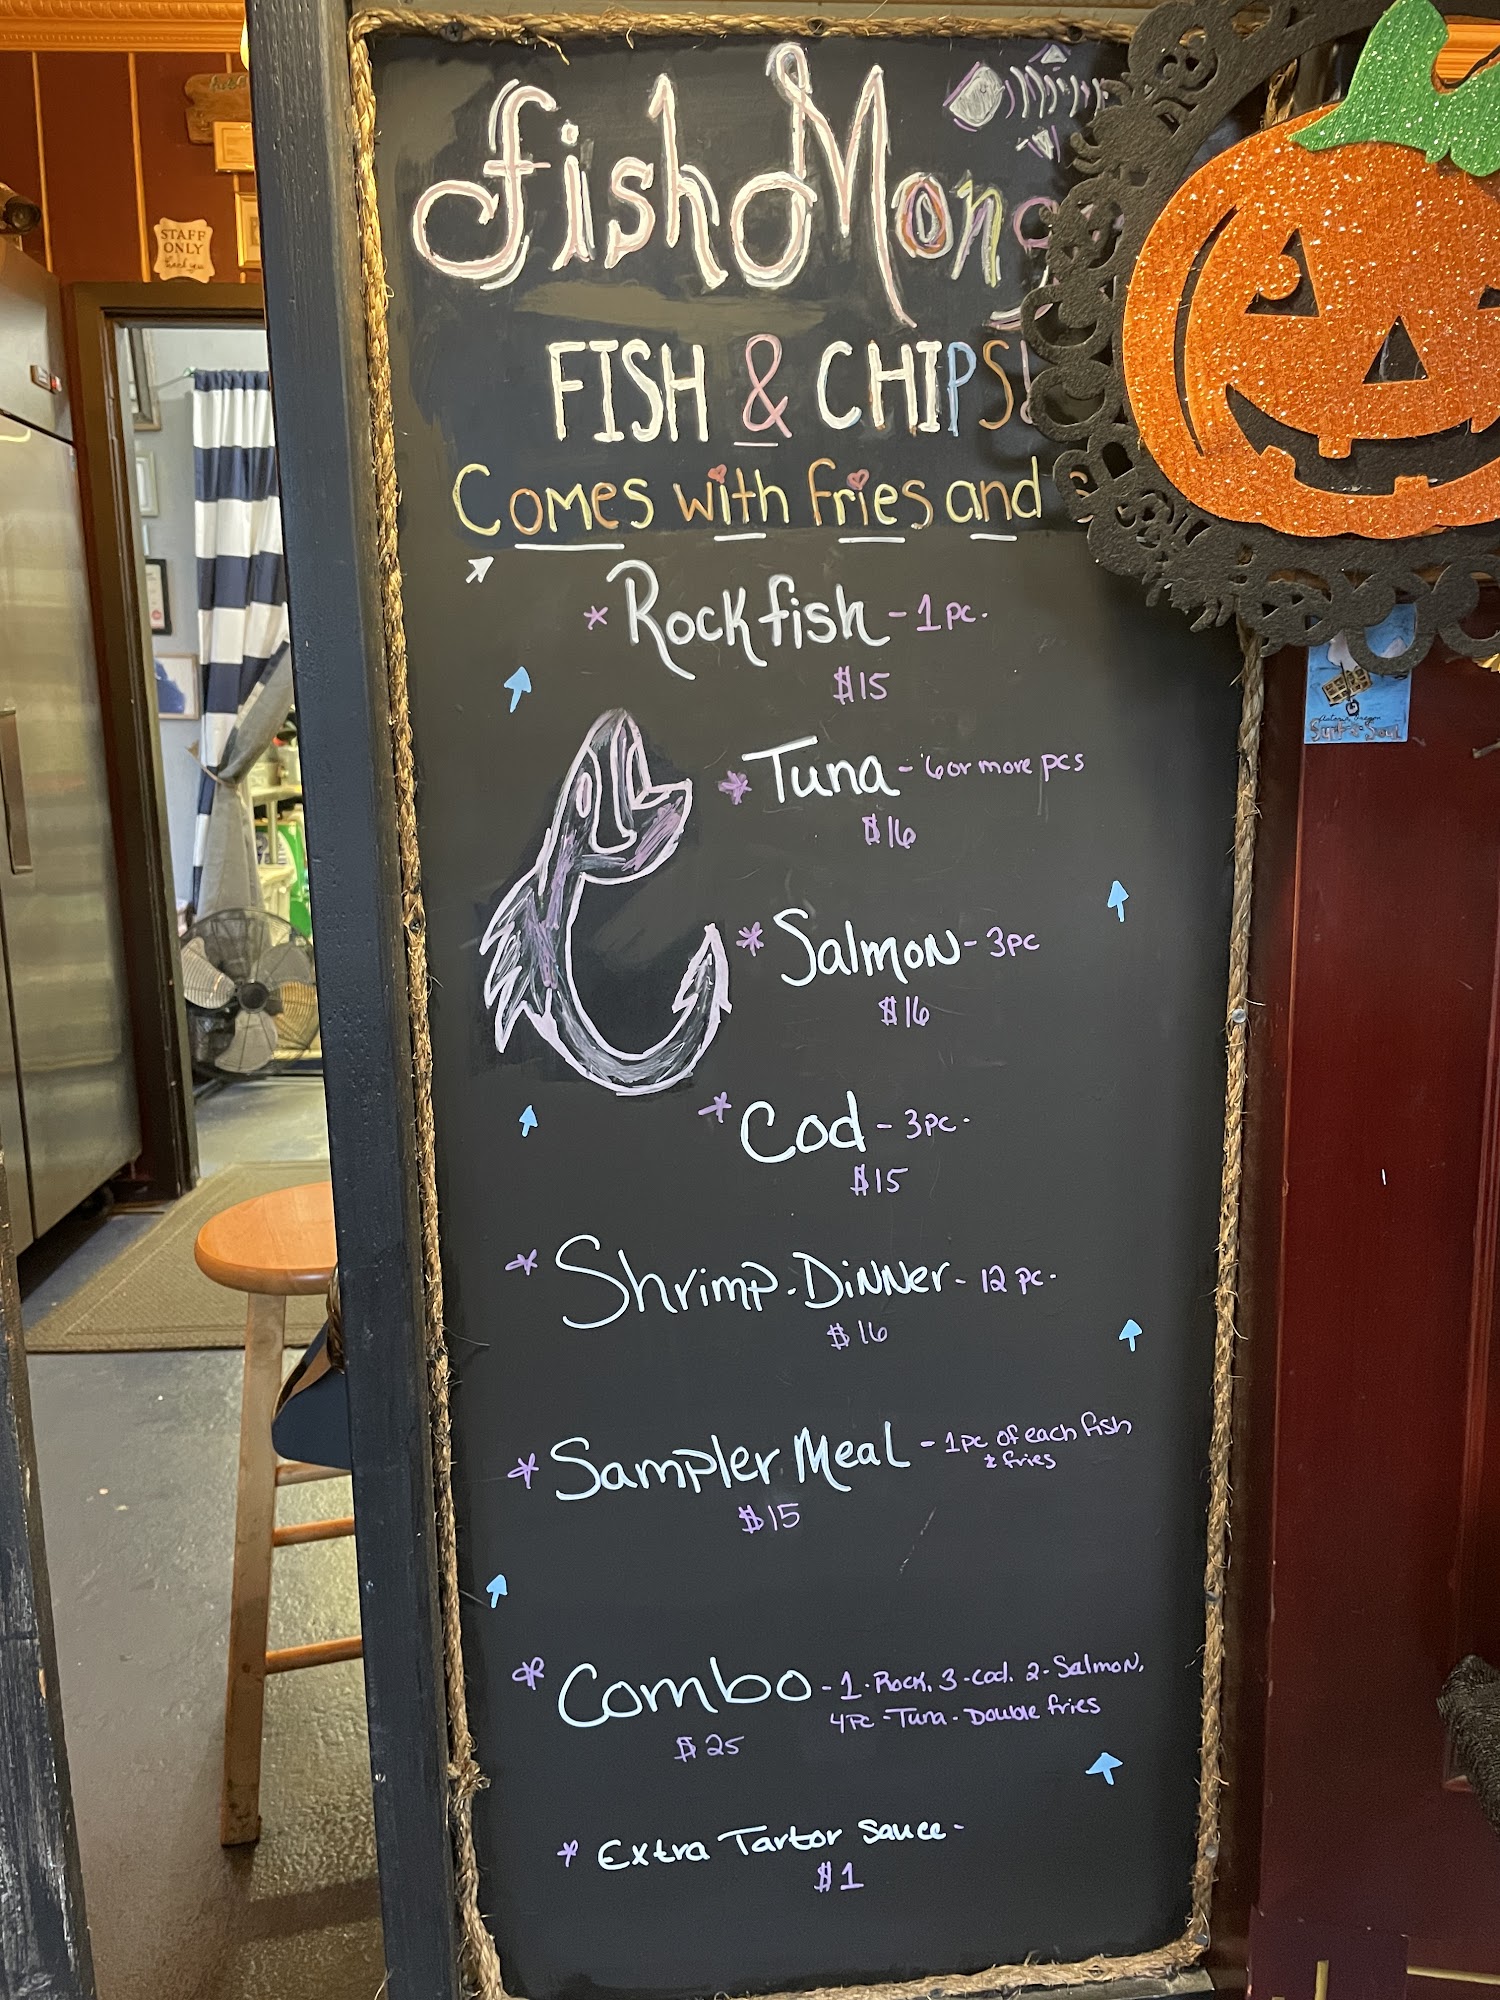 Fish Mong
FISH & CHIPS!
Comes with fries and
* Rockfish - 1 pc.
$15
* Tuna - 6 or more pcs
$16
* Salmon - 3pc
$16
* Cod - 3pc.
$15
* Shrimp. Dinner - 12 pc.
$16
* Sampler Meal - 1pc of each fish
& fries
$15
* Combo - 1. Rock, 3-Cod, 2-Salmon,
4pc - Tuna - Double fries
$25
* Extra Tartor Sauce -
$1
STAFF
ONLY
thank you
Astoria Oregon